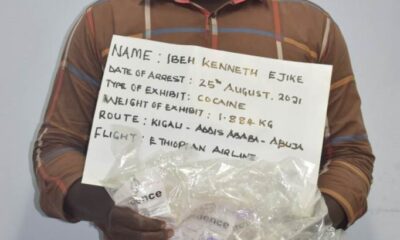 NAME: IBEH KENNETH EJIKE
DATE OF ARREST: 25th AUGUST, 2021
TYPE OF EXHIBIT: COCAINE
WEIGHT OF EXHIBIT: 1.884 KG
ROUTE: KIGALI - ADDIS ABABA - ABUJA
FLIGHT: ETHIOPIAN AIRLINE